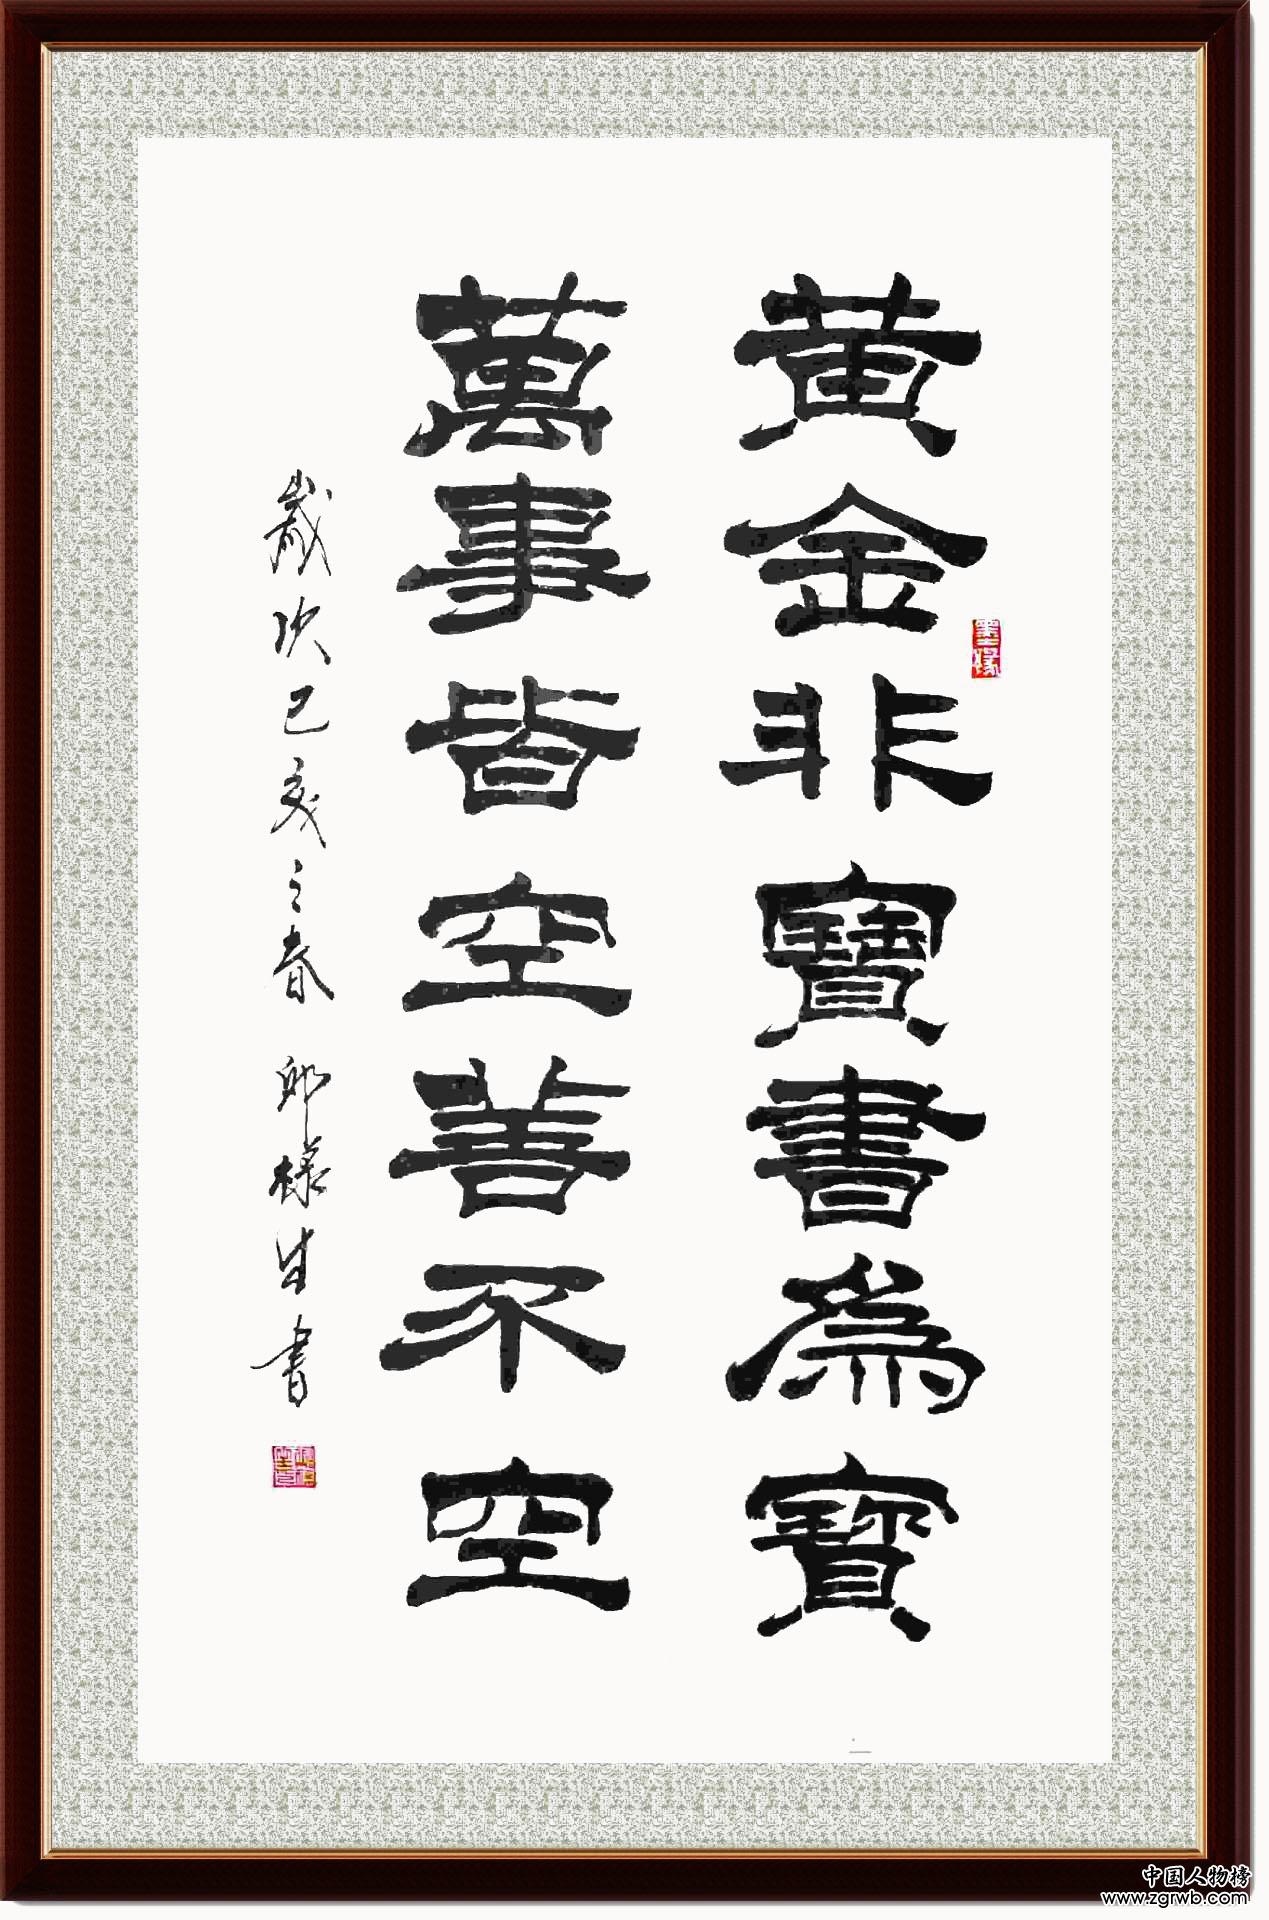 黄金非寶書為寶
萬事皆空善不空
歲次己亥之春 邱樣生書
墨緣
中国人物榜
www.zgrwb.com